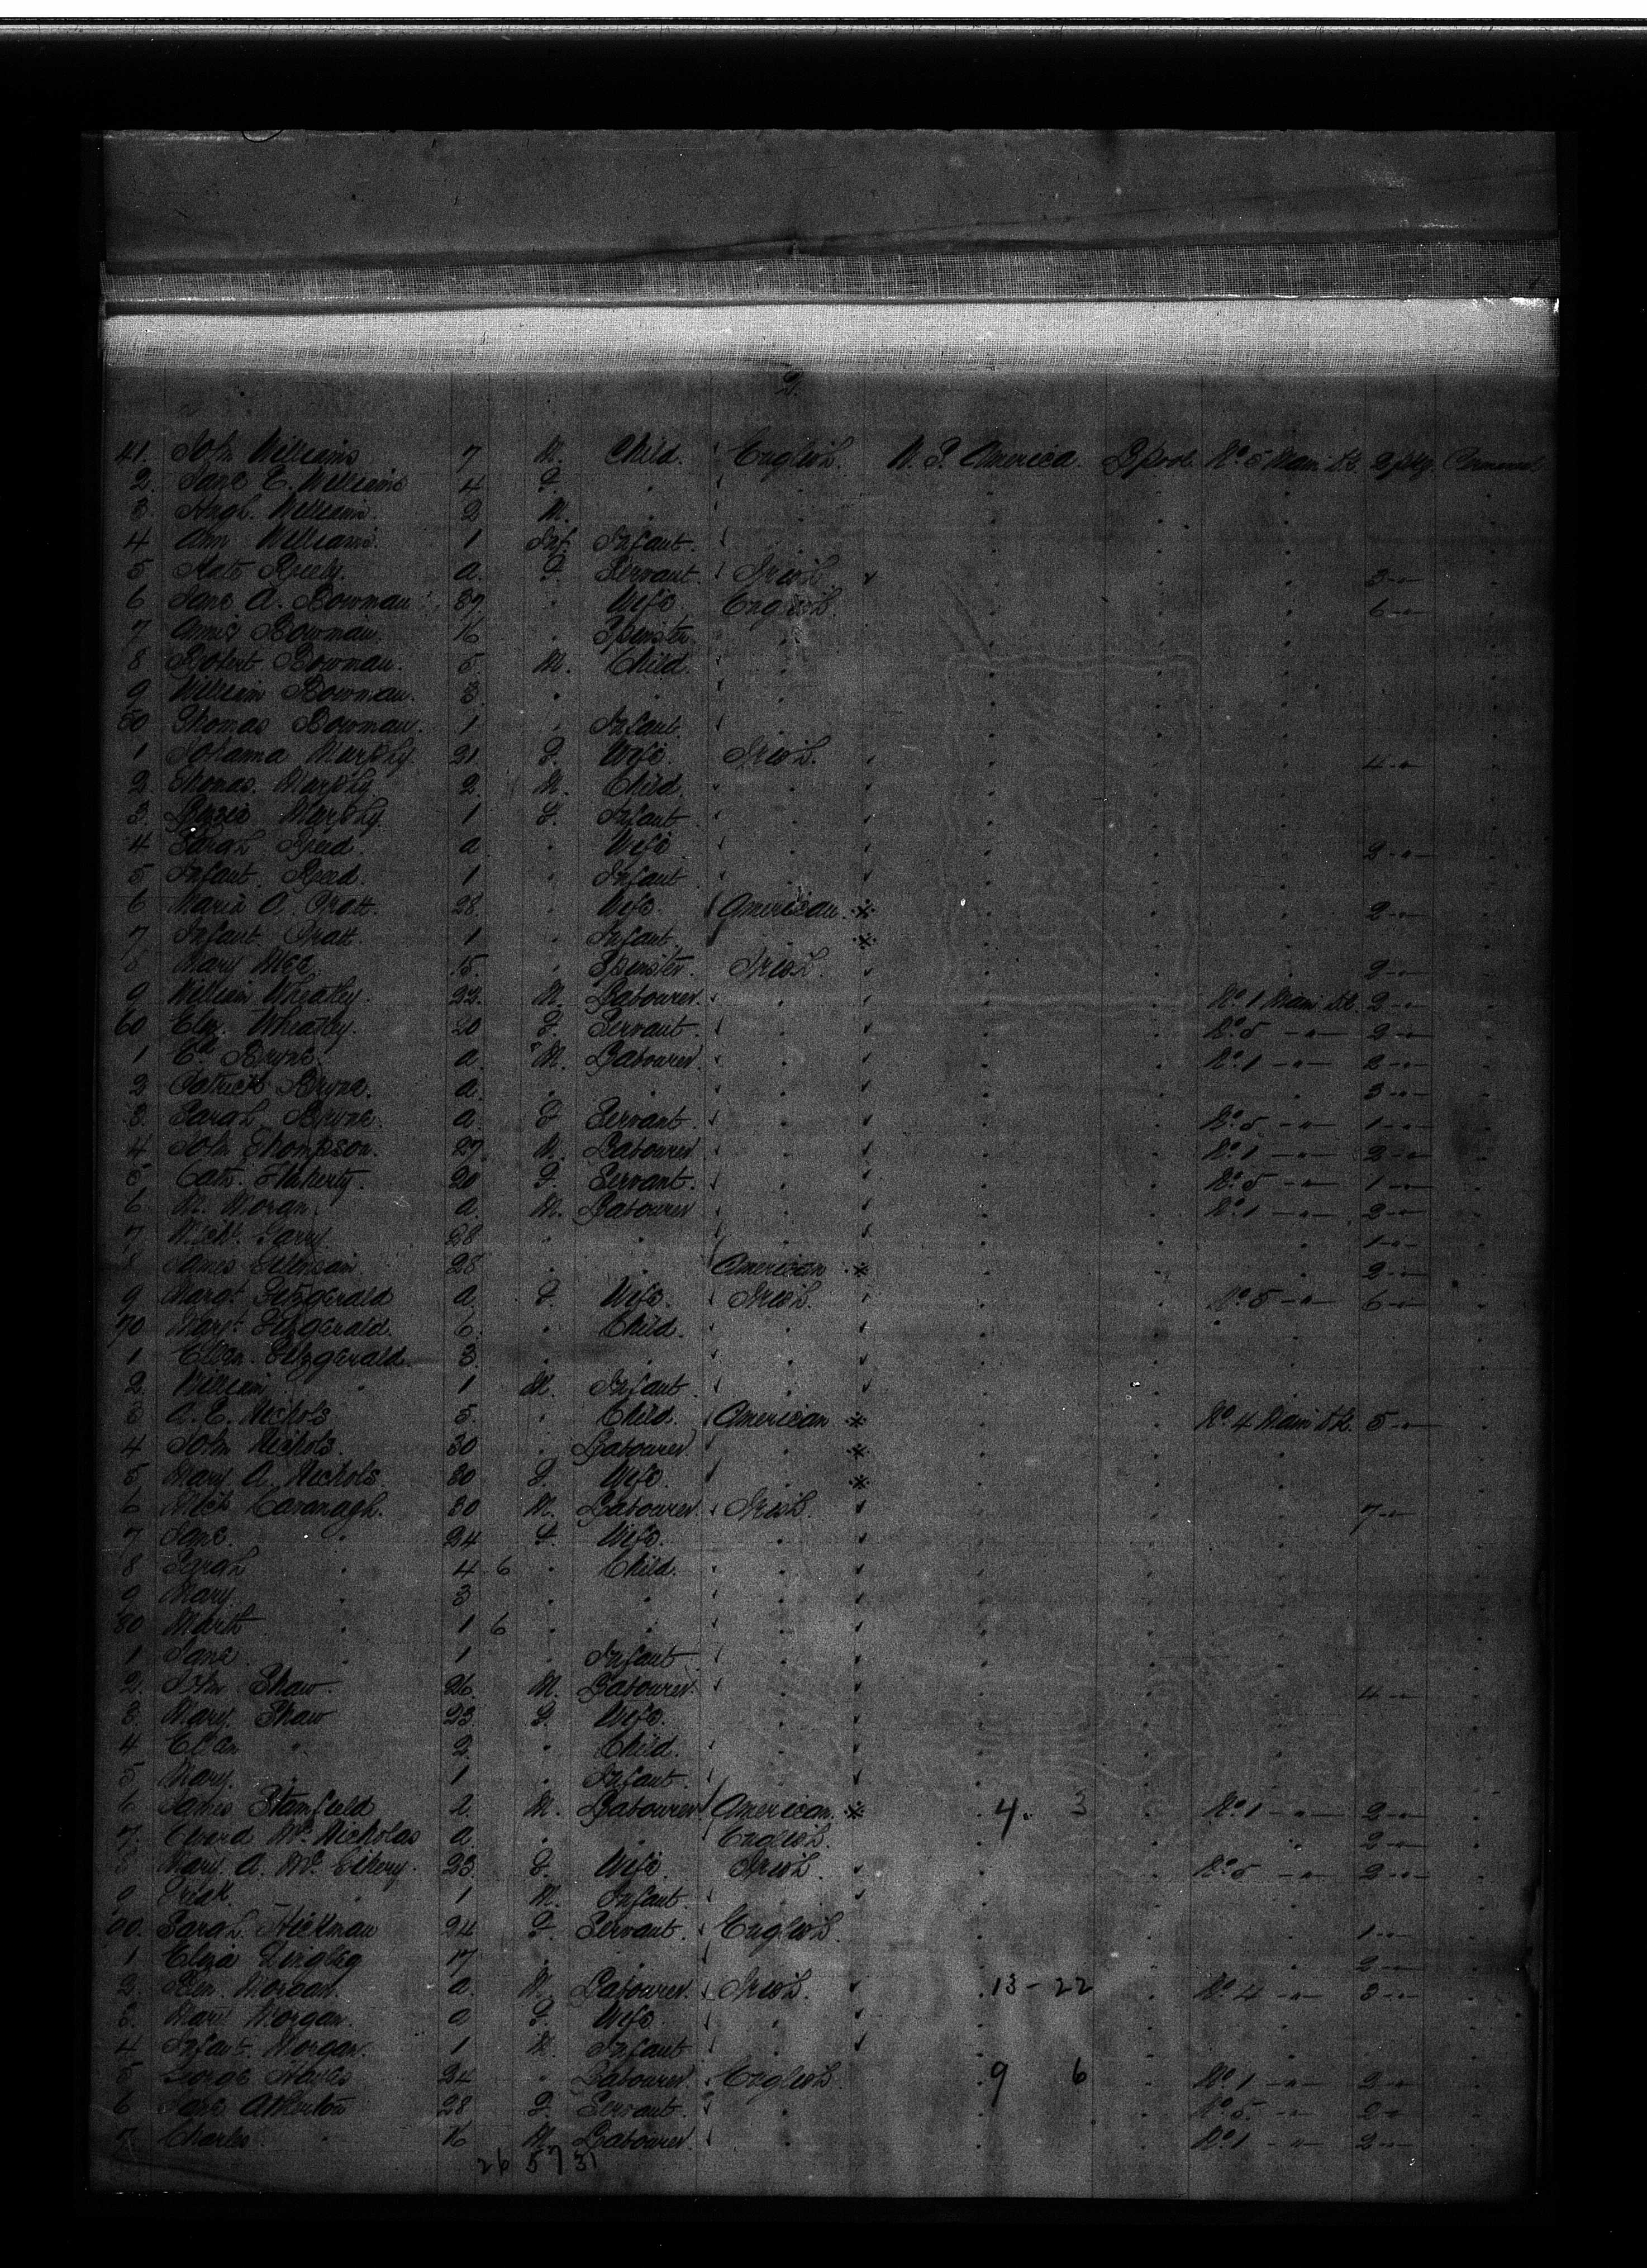 2.
41. John Williams 7 M. Child. English. U. S. America. L'pool. No. 5 Main Dk. 2 pkg.
2. Jane E. Williams 4 F. "
3. Hugh Williams 2 M. "
4 Ann Williams. 1 Inf. Infant.
5 Kate a. F. Servant. Irish. 3 "
6 Jane A. Bowman 37 " Wife. English. 6 "
7 Annie Bowman. 16 " Spinster.
8 Robert Bowman. 5 M. Child.
9 William Bowman. 3 " "
50 Thomas Bowman. 1 " Infant.
1 Johanna Murphy. 21 F. Wife. Irish. 4 "
2 Thomas Murphy 2. M. Child.
3. Murphy. 1 F. Infant.
4 Sarah Reed. a " Wife. 2 "
5 Infant Reed. 1 " Infant
6 Maria A. Pratt. 28. " Wife. American. 2 "
7 Infant Pratt. 1 " Infant.
8 Mary 15. " Spinster. Irish. 2 "
9 William Wheatley. 22. M. Labourer. No. 1 Main Dk. 2 "
60 Wheatley. 20 F. Servant. No. 5 " 2 "
1 Ed. Bryne. a. M. Labourer. No. 1 " 2 "
2 Patrick Bryne. a. " " 3 "
3. Sarah Bryne. a. F Servant. No. 5 " 1 "
4 John Thompson. 27. M. Labourer. No. 1 " 2 "
5 Cath. Flaherty. 20 F. Servant. No. 5 " 1 "
6 M. Moran. a. M. Labourer No. 1 " 2 "
7 Garry. 28 " " 1 "
8 James 28 " " American 2 "
9 Margt. Fitzgerald a. F. Wife. Irish. No. 5 " 6 "
70 Margt. Fitzgerald. 6. " Child.
1 Ellen Fitzgerald. 3. " "
2. William " 1 M. Infant
3 A. E. Nichols 5. " Child. American No. 4 Main Dk. 5 "
4 John Nichols. 30 " Labourer.
5 Mary A. Nichols 30 F. Wife.
6 Cavanagh. 30 M. Labourer. Irish. 7 "
7 Jane. " 24 F. Wife.
8 Sarah " 4 6 " Child.
9 Mary. " 3 " "
80 Marth " 1 6 " "
1 Jane " 1 " Infant
2. John Shaw. 26. M. Labourer. 4 "
3. Mary Shaw 23 F. Wife.
4 " 2 " Child.
5 Mary. " 1 " Infant.
6 James Stamfield M. Labourer American. 4. 3 No. 1 " 2 "
7. McNicholas a. " " English. 2 "
8 Mary A. 23. F. Wife. Irish. No. 5 " 2 "
9 " 1 M. Infant
90. Sarah Hickman 24 F. Servant. English. 1 "
1 Eliza 17 " " 2 "
2. Morgan. a. M. Labourer. Irish. 13 - 22 No. 4 " 3 "
3. Mary Morgan. a F. Wife.
4 Infant Morgan. 1 M. Infant
5 24 " Labourer. English. 9 6 No. 1 " 2 "
6 Atherton 28 F. Servant. No. 5. " 2 "
7 Charles " 16 M. Labourer. No. 1 " 2 "
26 5 7 31